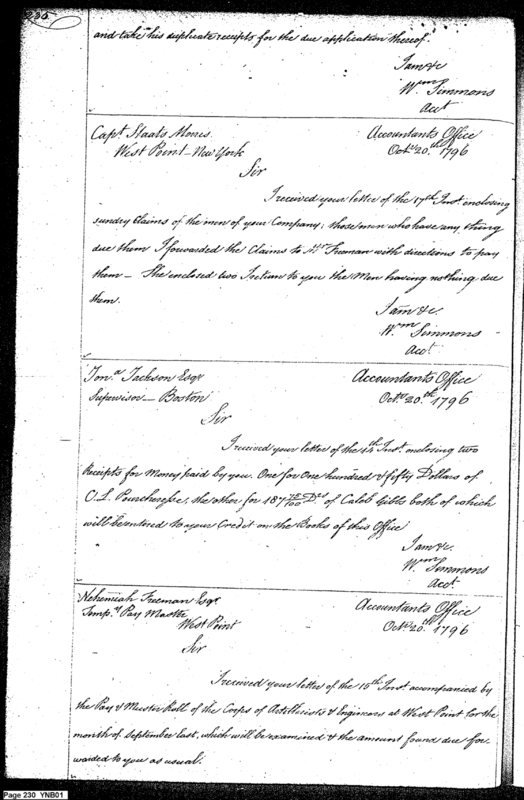 235
and take his duplicate receipts for the due application thereof.
I am &c
Wm Simmons
Acct
Capt. Staats Morris
West Point - New York
Accountants Office
Octr. 20th. 1796
Sir
I received your letter of the 17th Inst enclosing
sundry Claims of the men of your Company; those men who have any thing
due them I forwarded the Claims to Mr Freeman with directions to pay
them - The enclosed two I return to you the Men having nothing due
them.
I am &c.
Wm Simmons
Acct
Jona. Jackson Esqr
Supervisor - Boston
Accountants Office
Octr. 20th. 1796
Sir
I received your letter of the 14th Inst. enclosing two
Receipts for Money paid by you. One for One hundred & fifty Dollars of
C. L. the other, for 187 75/100 Ds of Caleb Gibbs both of which
will be entered to your Credit on the Books of this Office
I am &c.
Wm Simmons
Acct
Nehemiah Freeman Esqr.
Tempy Pay Master
West Point
Accountants Office
Octr. 20th 1796
Sir
I received your letter of the 15th Inst. accompanied by
the Pay & Muster Roll of the Corps of Artillerists & Engineers at West Point for the
month of September last, which will be examined & the amount found due for-
warded to you as usual.
Page 230 YNB01